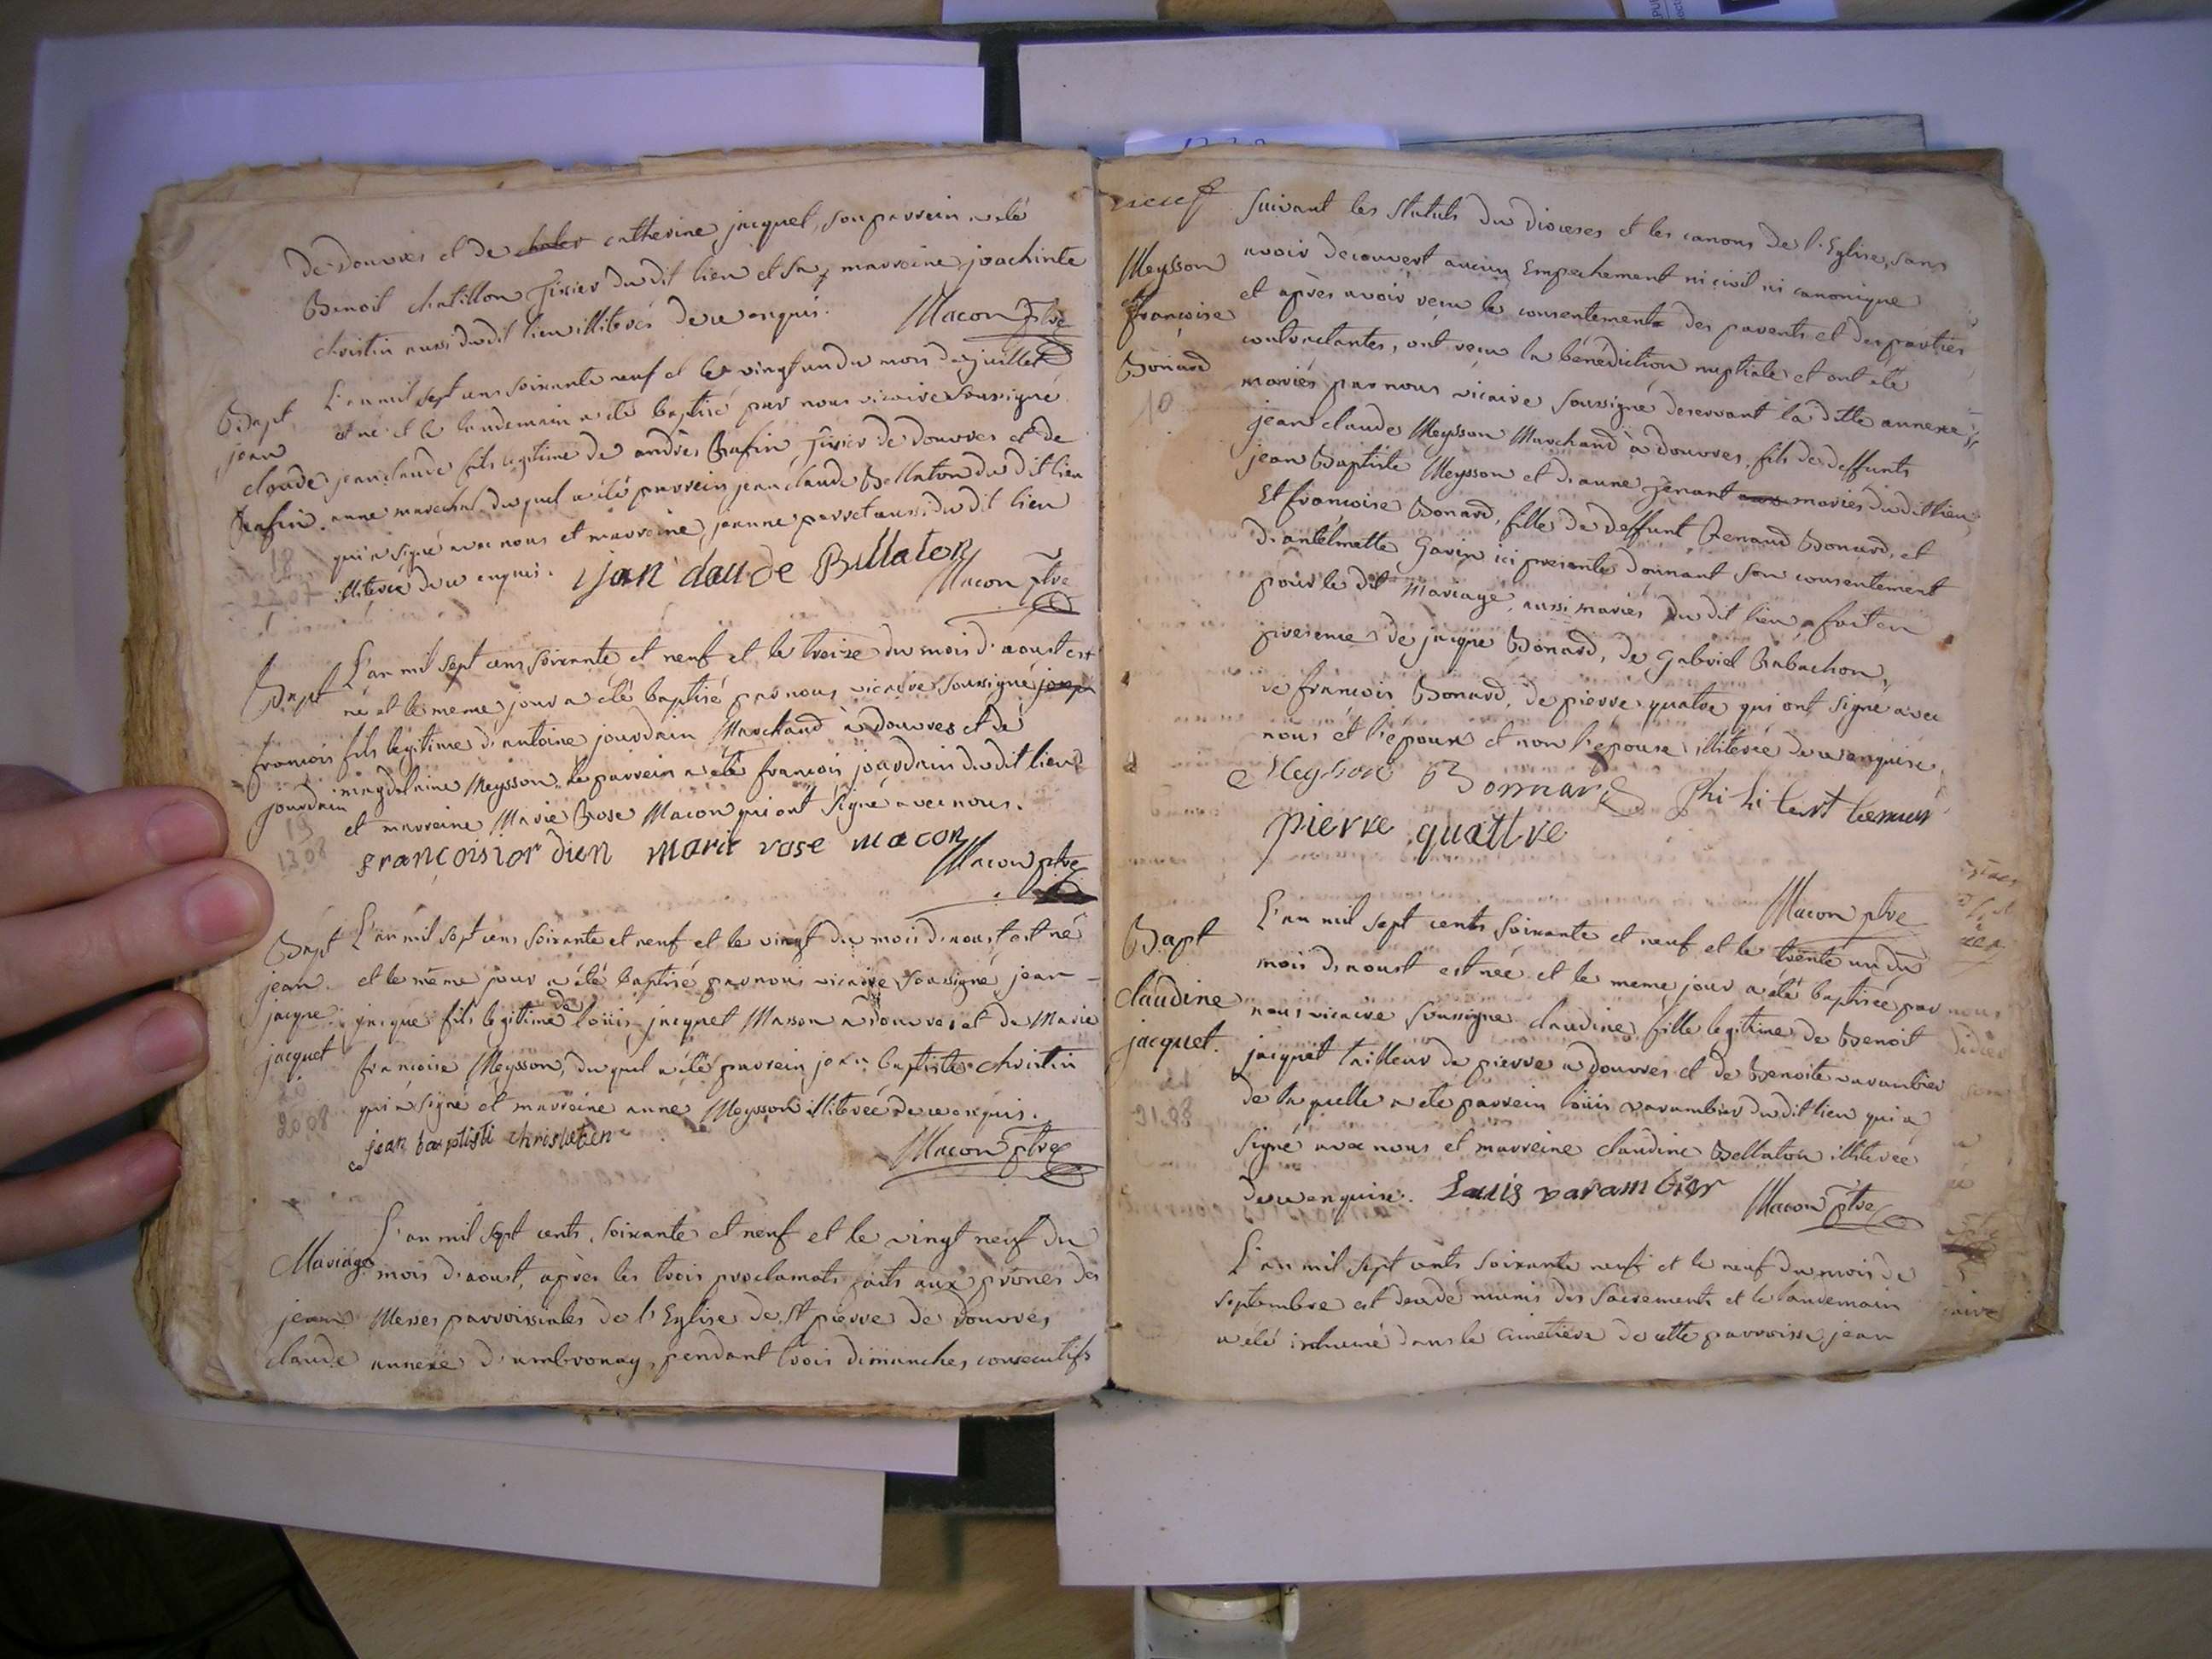 de douvres et de catherine jacquet, son parrein a été
Benoit chatillon tixier du dit lieu et sa marreine joachinte
christin aussi du dit lieu illiterés de ce enquis. Macon ptre
Bapt
jean
claude
Rafin
18
22,07
L'an mil sept cens soixante neuf et le vingt un du mois de juillet
est né et le landemain a été baptisé par nous vicaire soussigné
jean claude fils legitime de andrès Rafin, tixier de douvres et de
anne marechal duquel a été parrein jean claude Bellaton du dit lieu
qui a signé avec nous et marreine, jeanne perret aussi du dit lieu
illiterée de ce enquis. jan claude Bellaton
Macon ptre
Bapt
francois
jourdain
19
13,08
L'an mil sept cens soixante et neuf et le treize du mois d'aoust est
né et le meme jour a été baptisé par nous vicaire soussigné
fils légitime d'antoine jourdain Marchand à douvres et de
magdelaine Meysson, le parrein a été francois jourdain du dit lieu
et marreine Marie Rose Macon qui ont signé avec nous.
françois ior dien marie rose macon
Macon ptre
Bapt
jean
jacque
jacquet
20
20,08
L'an mil sept cens soixante et neuf et le vingt du mois d'aoust est né
et le même jour a été baptisé par nous vicaire soussigné jean
jacque fils legitime de loüis jacquet Masson a douvres et de Marie
francoise Meysson, duquel a été parrein jean baptiste christin
qui a signé et marreine anne Meysson illiterée de ce enquis.
jean baptisti christien
Macon ptre
Mariage
jean
claude
L'an mil sept cents soixante et neuf et le vingt neuf du
mois d'aoust, après les trois proclamats faits aux prônes des
Messes parroissiales de l'Eglise de St pierre de douvres
annexe d'ambronay, pendant trois dimanches consecutifs
neuf
Meysson
et
francoise
Bonard
10
suivant les statuts du dioceses et les canons de l'Eglise, sans
avoir decouvert aucun Empechement ni civil ni canonique
et après avoir reçu le consentement des parents et des parties
contractantes, ont reçu la bénédiction nuptiale et ont été
mariés par nous vicaire soussigné deservant la ditte annexe
jean claude Meysson Marchand à douvres, fils de deffunts
jean Baptiste Meysson et d'anne jenant mariés du dit lieu
Et francoise Bonard, fille de deffunt Renaud Bonard, et
d'antelmette Gavin ici presente donnant son consentement
pour le dit Mariage, aussi mariés du dit lieu, fait en
presence de jacque Bonard, de Gabriel Rabachon,
de francois Bonard, de pierre quatre qui ont signé avec
nous et l'epoux et non l'epouse illiterée de ce enquise.
Meysson Bonnard
pierre quattre
Macon ptre
Bapt
claudine
jacquet.
31,08
L'an mil sept cents soixante et neuf et le trente un du
mois d'aoust est née et le meme jour a été baptisée par
nous vicaire soussigné claudine fille legitime de Benoit
jacquet tailleur de pierre a douvres et de Benoite varambier
de laquelle a été parrein loüis varambier du dit lieu qui a
signé avec nous et marreine claudine Bellaton illiterée
de ce enquise. Louis varambier
Macon ptre
L'an mil sept cents soixante neuf et le neuf du mois de
septembre est decedé munis des sacrements et le landemain
a été inhumé dans le cimetiere de cette parroisse jean